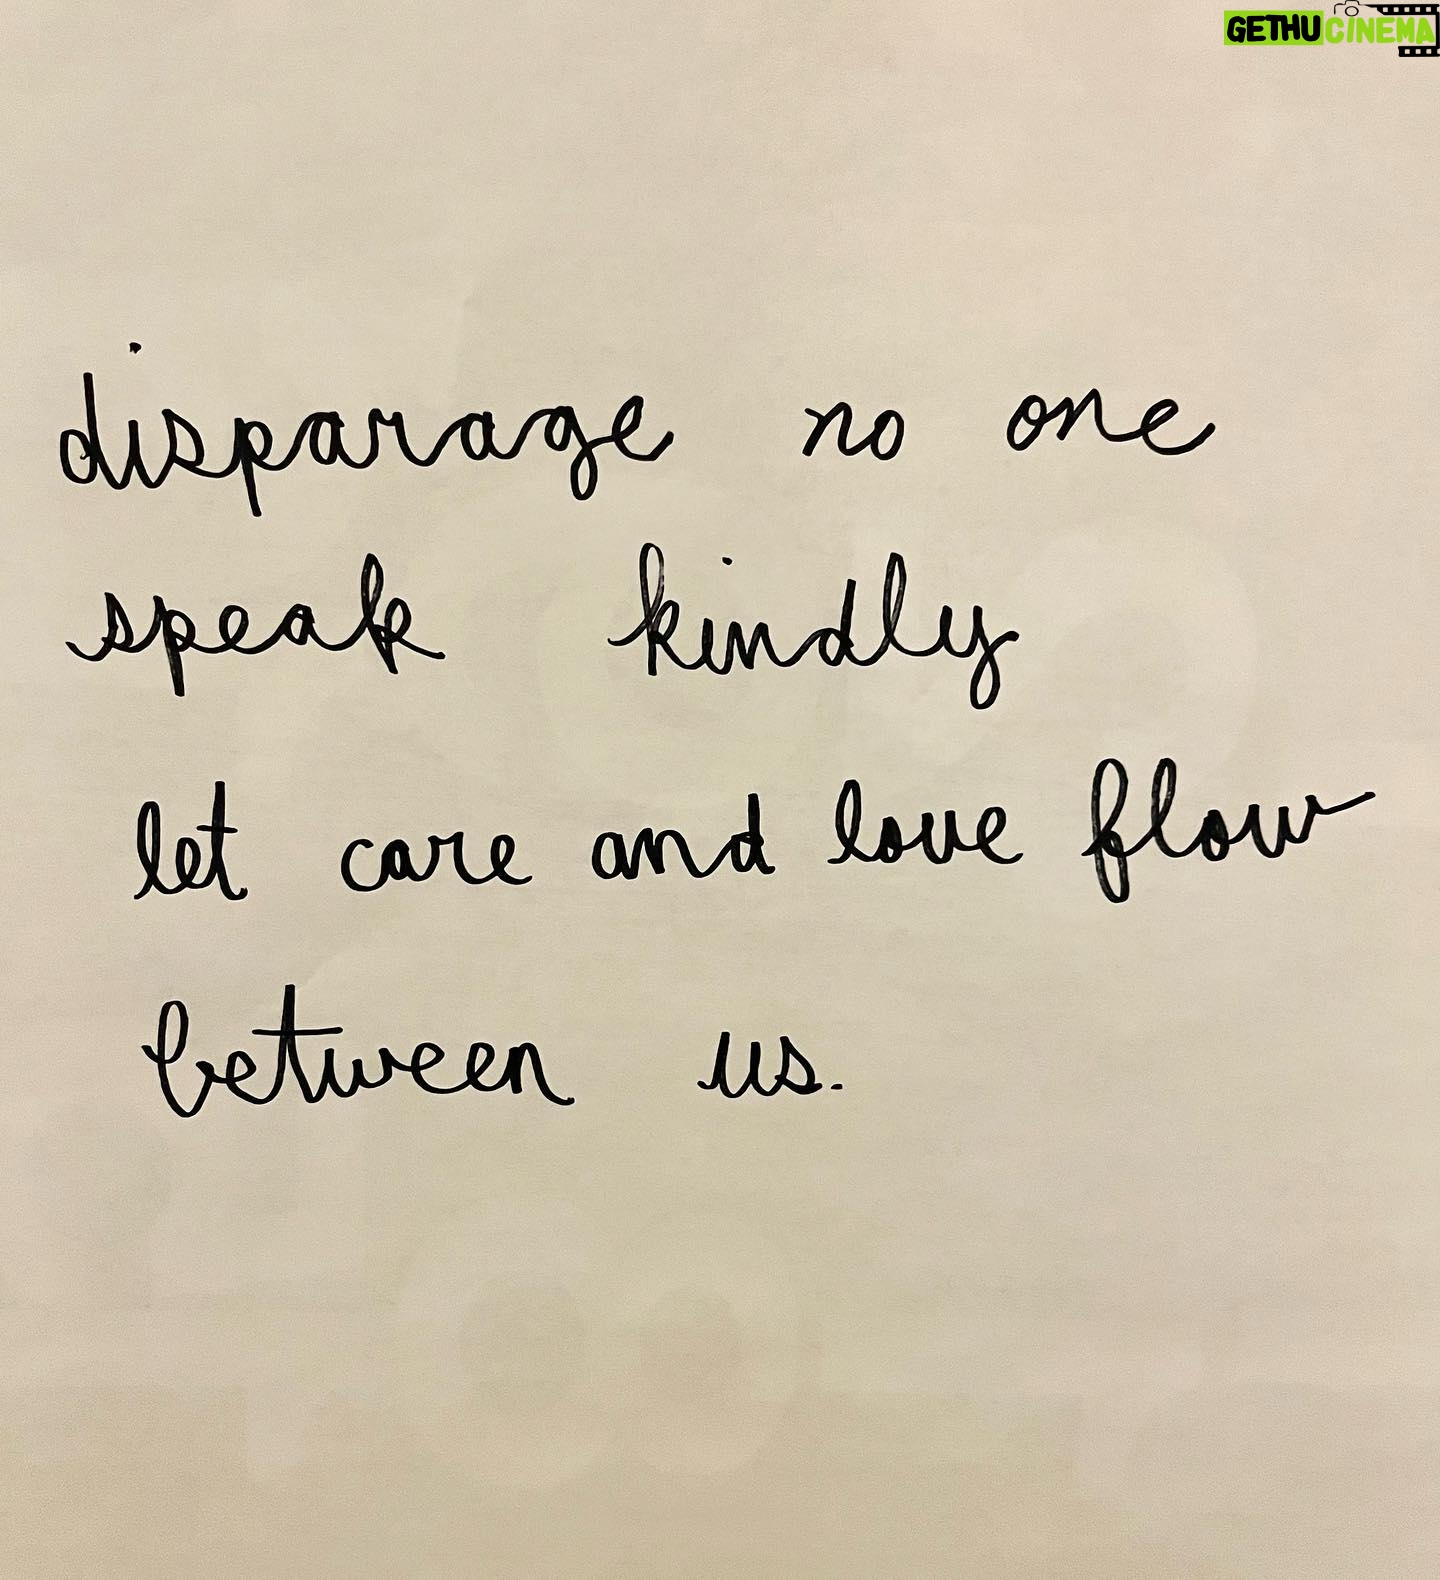 GETHUCINEMA
disparage no one
speak kindly
let care and love flow
between us.